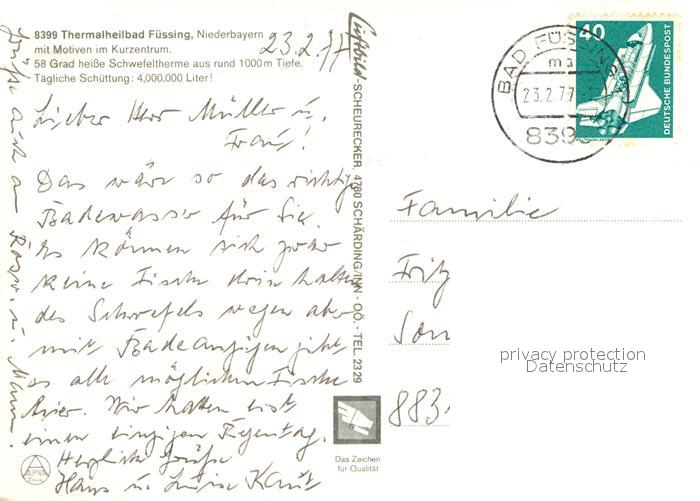 8399 Thermalheilbad Füssing, Niederbayern
mit Motiven im Kurzentrum.
58 Grad heiße Schwefeltherme aus rund 1000 m Tiefe.
Tägliche Schüttung: 4,000.000 Liter!
23.2.77
Lieber Herr Müller u.
Frau!
Das wäre so das richtige
Badewasser für Sie.
Es können sich zwar
keine Fische drin halten
des Schwefels wegen aber
mit Badeanzügen gibt
es alle möglichen Fische
hier. Wir hatten erst
einen einzigen Regentag.
Herzliche Grüße
Hans u. Luise
Grüße auch an
u. Mann.
Luftbild-SCHEURECKER, 4780 SCHÄRDING/INN - OÖ. - TEL. 2329
BAD FÜSSING
ma
23.2.77
839
40
DEUTSCHE BUNDESPOST
Familie
Fritz
883
privacy protection
Datenschutz
Das Zeichen
für Qualität
ALPINA